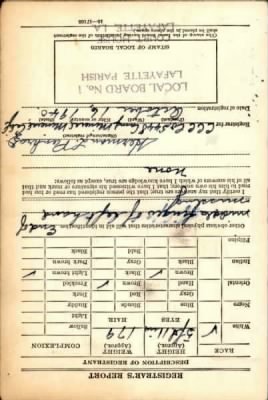 REGISTRAR'S REPORT
DESCRIPTION OF REGISTRANT
RACE
HEIGHT (Approx.)
WEIGHT (Approx.)
COMPLEXION
5 ft 11 in
179
EYES
HAIR
White ✓
Negro
Oriental
Indian
Filipino
Blue
Gray
Hazel
Brown ✓
Black
Blonde
Red
Brown ✓
Black
Gray
Bald
Sallow
Light
Ruddy
Dark
Freckled
Light brown ✓
Dark brown
Black
Other obvious physical characteristics that will aid in identification
End of
middle finger of left hand
missing
I certify that my answers are true; that the person registered has read or has had
read to him his own answers; that I have witnessed his signature or mark and that
all of his answers of which I have knowledge are true, except as follows:
none
(Signature of registrar)
Registrar for
(Precinct)
(Ward)
(City or county)
(State)
Date of registration October 16, 1940
LOCAL BOARD No. 1
LAFAYETTE PARISH
COURT HOUSE
LAFAYETTE, LA.
(STAMP OF LOCAL BOARD)
(The stamp of the Local Board having jurisdiction of the registrant
shall be placed in the above space)